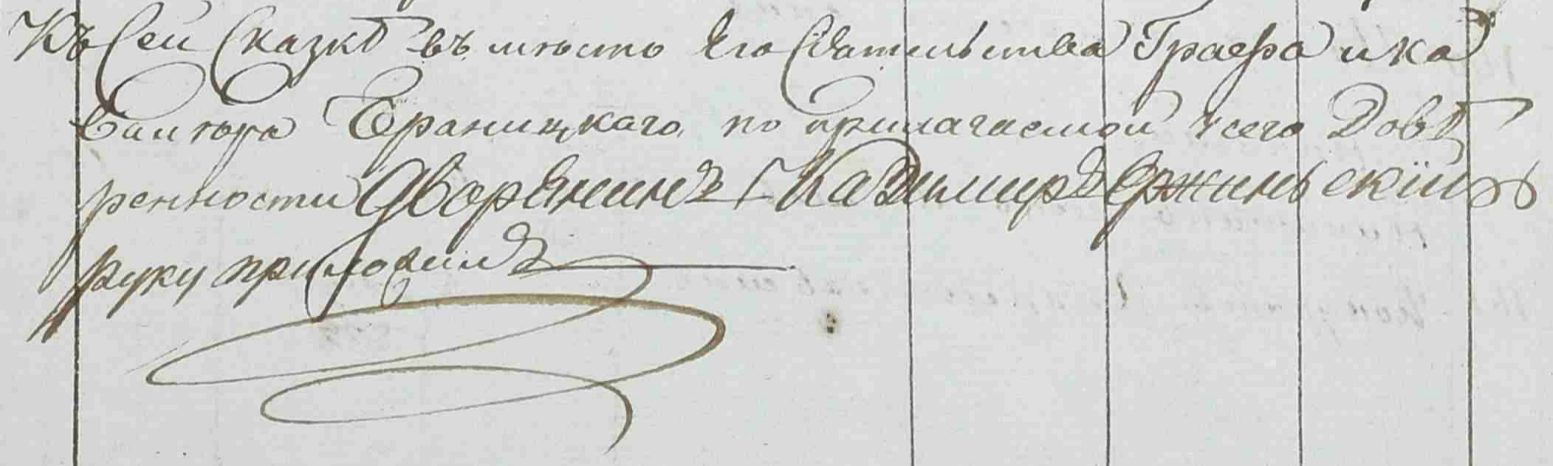 Къ Сей Сказкѣ въ мѣсто Его Сіятельства Графа и ка
валера Браницкаго по прилагаемой у сего Довѣ
ренности Дворянинъ Казимиръ Држиньскій
руку приложилъ